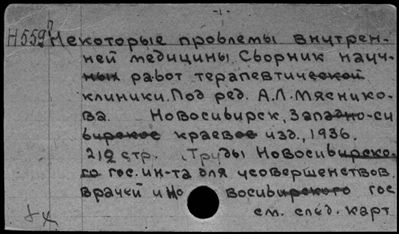 Н559 Некоторые проблемы внутрен-
ней медицины. Сборник науч-
ных работ терапевтической
клиники. Под ред. А.Л. Мяснико-
ва. Новосибирск, Западно-си
бирское краевое изд., 1936.
212 стр. (Труды Новосибирско-
го гос. ин-та для усовершенствов.
врачей и Новосибирского гос
см. след. карт